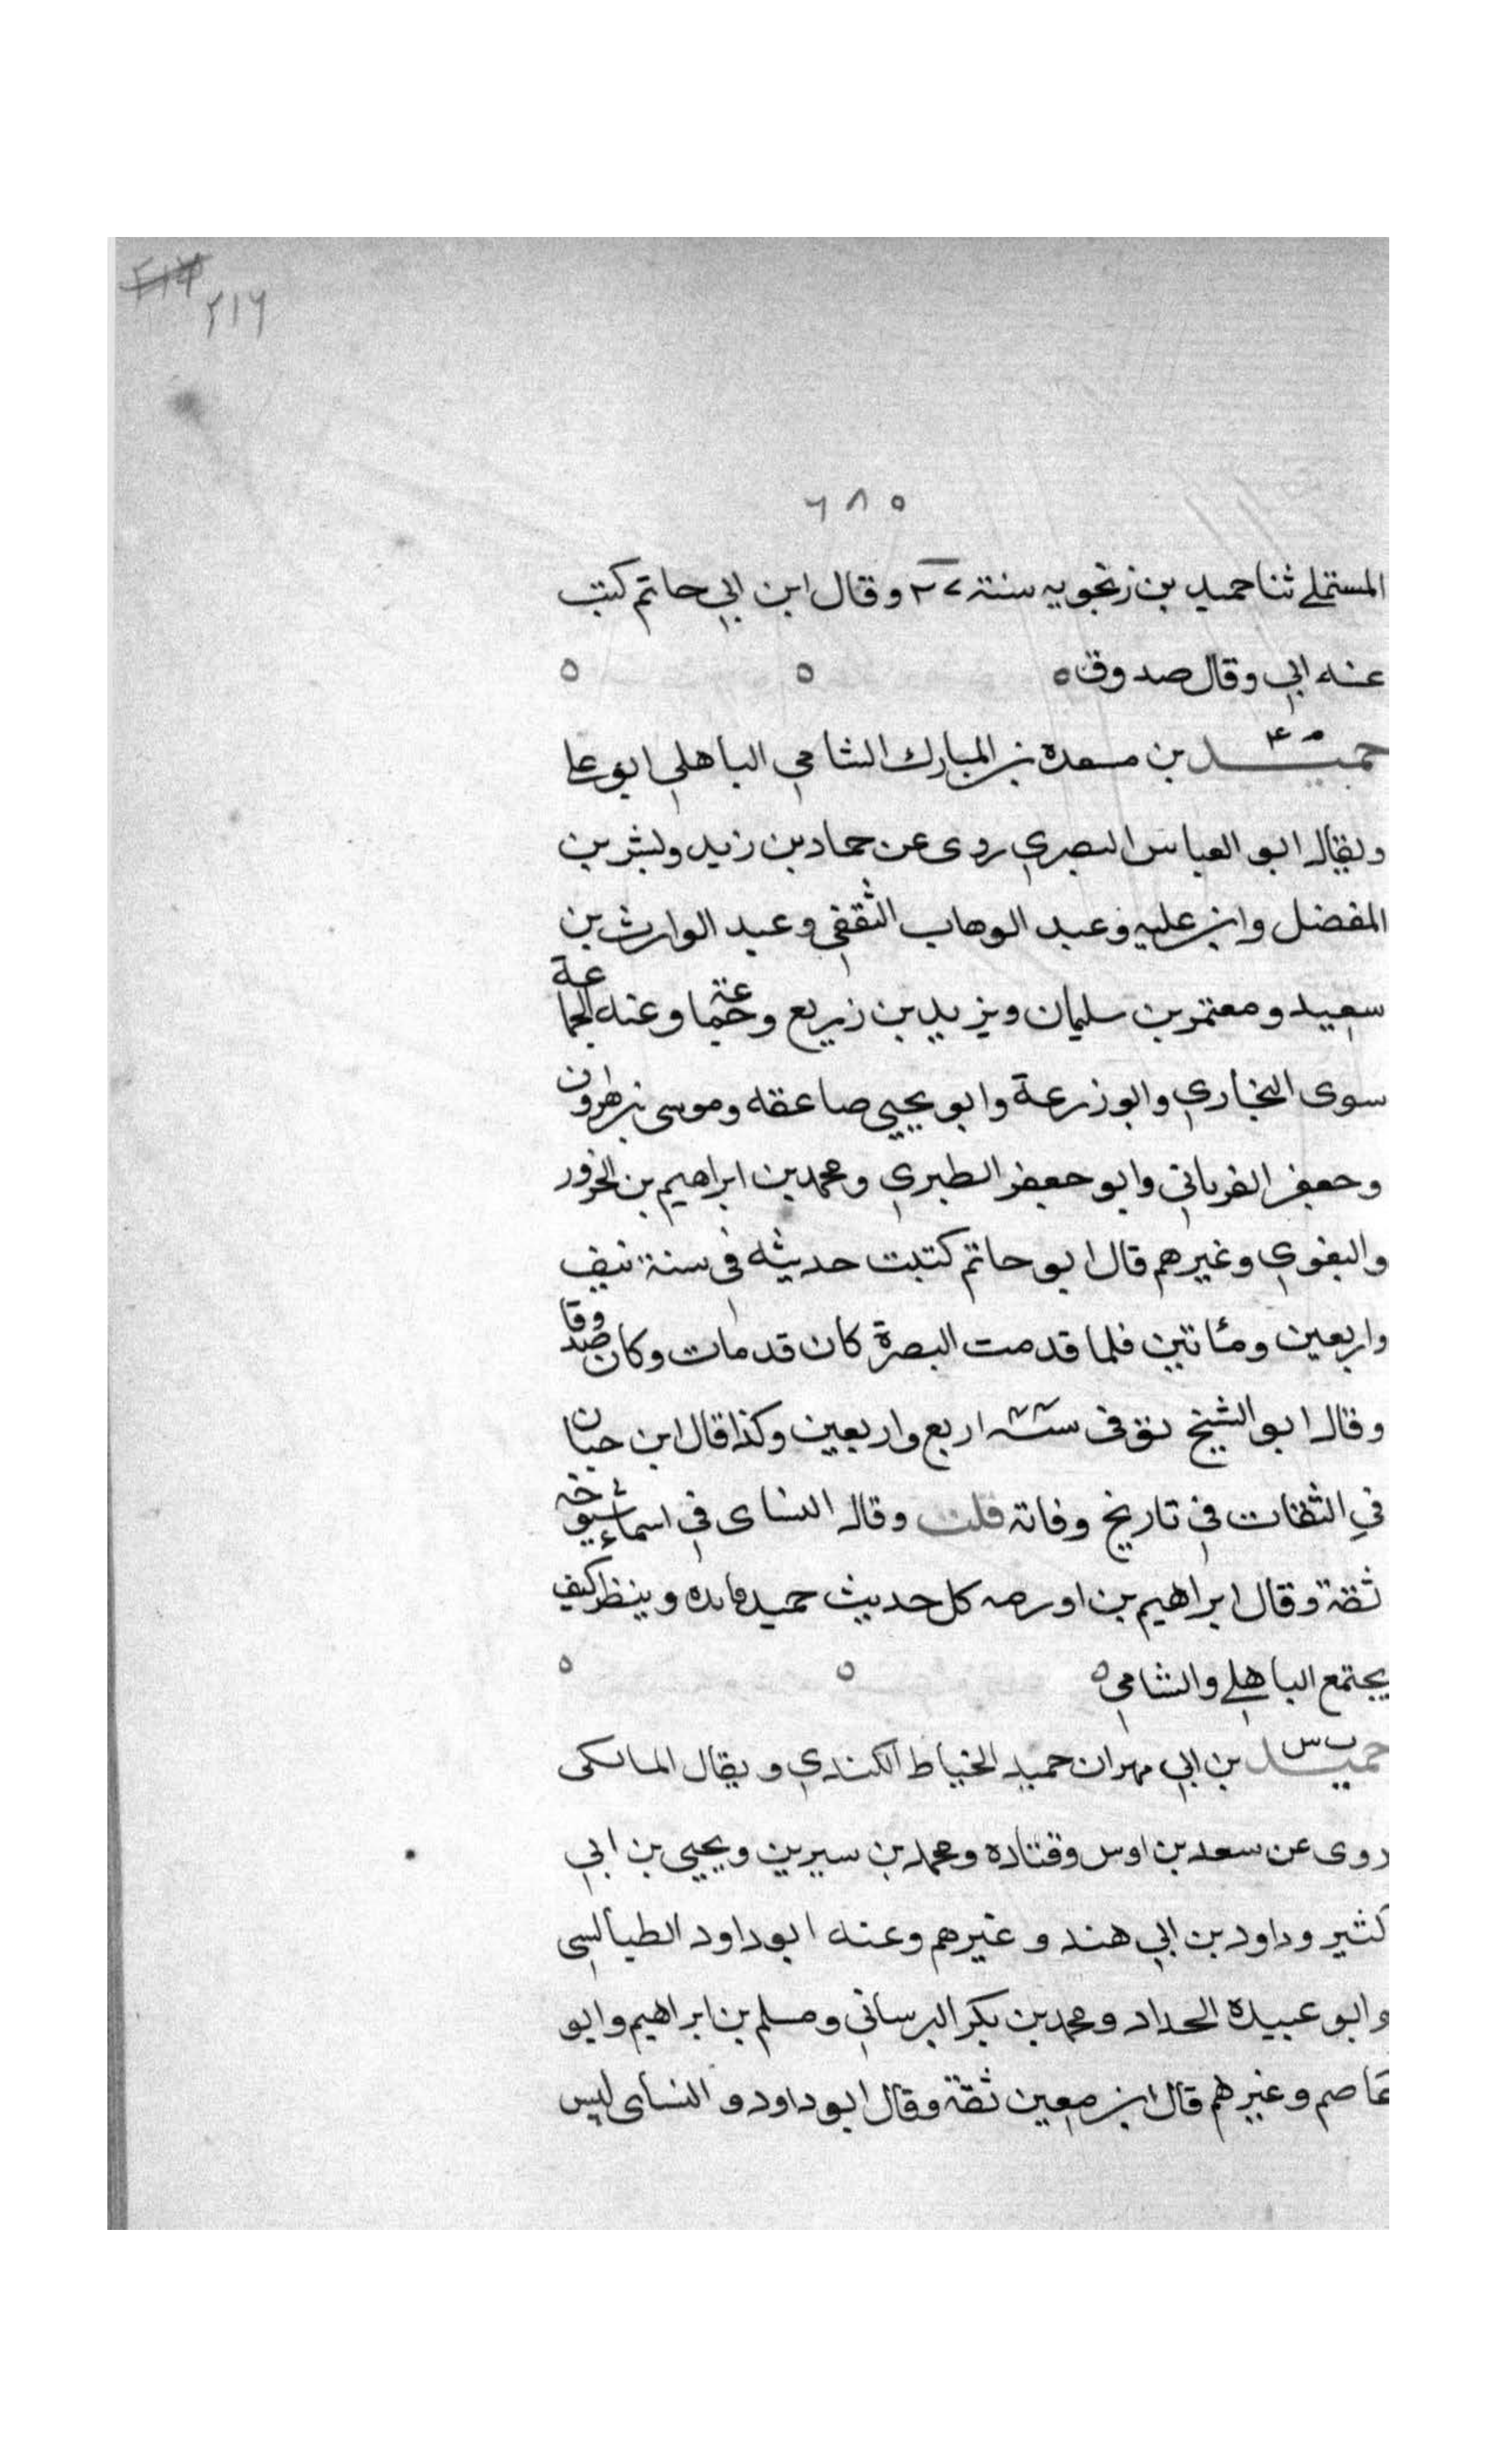 ٢١٦
٦٨٥
المستملي ثنا حميد بن زنجويه سنة ٢٧ وقال ابن ابي حاتم كتب
عنه ابي وقال صدوق ٥ ٥ ٥
حميد بن مسعده بن المبارك الشامي الباهلي ابو علي
ويقال ابو العباس البصري روى عن حماد بن زيد وبشر بن
المفضل وابن عليه وعبد الوهاب الثقفي وعبد الوارث بن
سعيد ومعتمر بن سليمان ويزيد بن زريع وجماعة وعنه الجماعة
سوى البخاري وابو زرعة وابو يحيى صاعقه وموسى بن هارون
وجعفر الفريابي وابو جعفر الطبري ومحمد بن ابراهيم بن الحزور
والبغوي وغيرهم قال ابو حاتم كتبت حديثه في سنة نيف
واربعين ومئاتين فلما قدمت البصرة كان قد مات وكان صدوقا
وقال ابو الشيخ توفى سنة اربع واربعين وكذا قال ابن حبان
في الثقات في تاريخ وفاته قلت وقال النساى في اسماء شيوخه
ثقة وقال ابراهيم بن اورمه كل حديث حميد وينظر كيف
يجتمع الباهلي والشامي ٥ ٥ ٥
س
حميد بن ابي مهران حميد الخياط الكندي ويقال المالكى
روى عن سعد بن اوس وقتاده ومحمد بن سيرين ويحيى بن ابي
كثير وداود بن ابي هند وغيرهم وعنه ابو داود الطيالسى
وابو عبيدة الحداد ومحمد بن بكر البرساني ومسلم بن ابراهيم وابو
عاصم وغيرهم قال ابن معين ثقة وقال ابو داود و النساى ليس